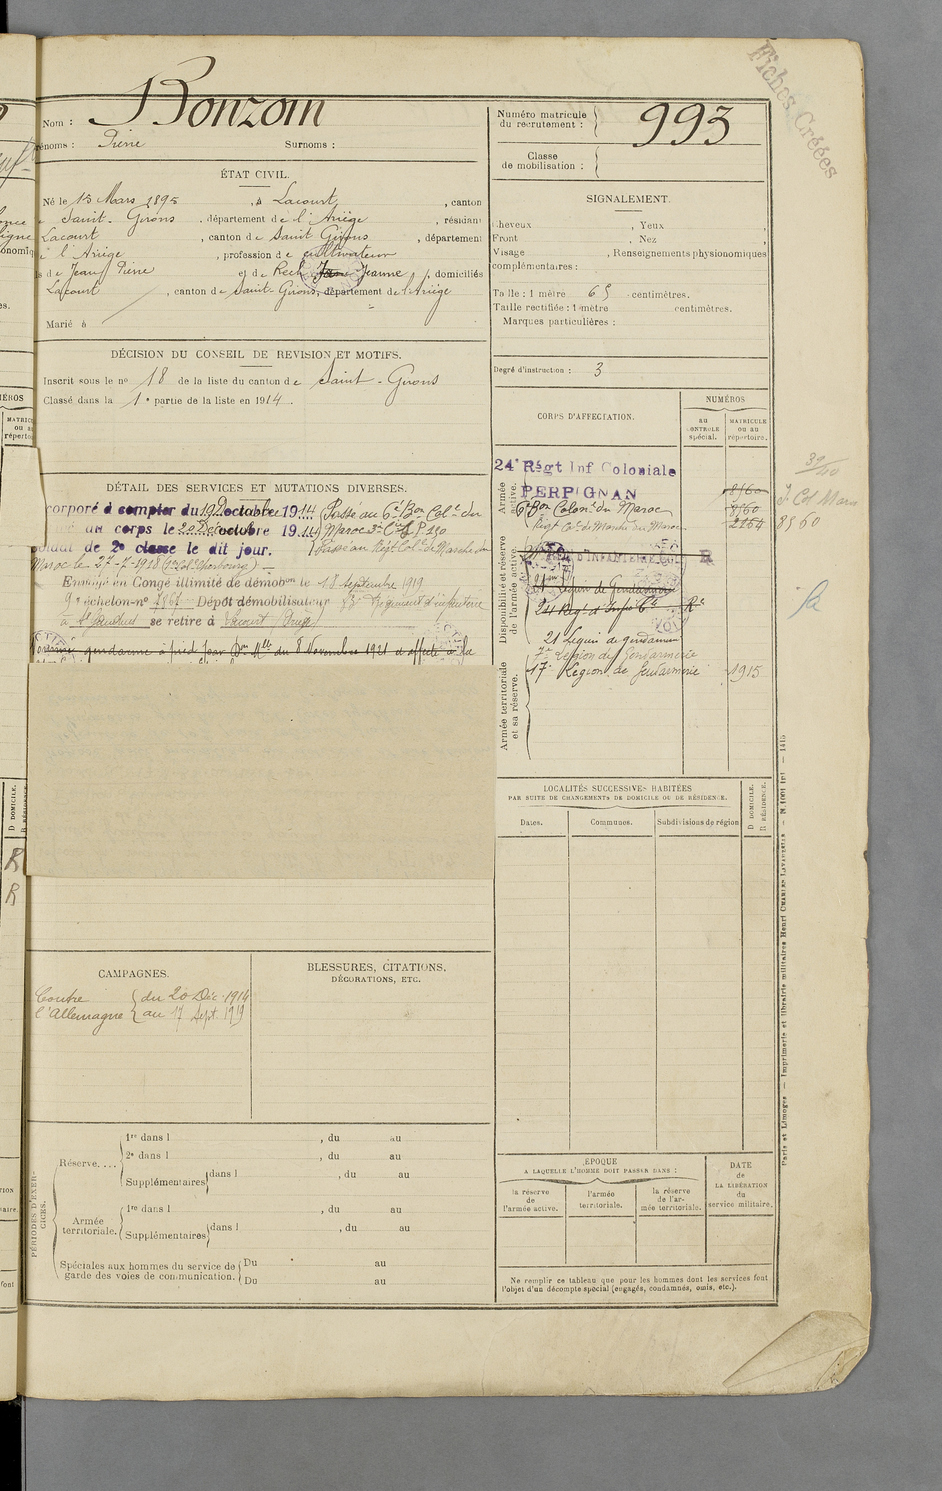 Fiches Créées
Nom : Bonzom
Prénoms : Pierre Surnoms :
Numéro matricule du recrutement : 993
Classe de mobilisation :
ÉTAT CIVIL.
Né le 15 Mars 1895, à Lacourt, canton
de Saint-Girons, département de l'Ariège, résidant
Lacourt, canton de Saint Girons, département
de l'Ariège, profession de cultivateur
de Jean Pierre et de Rech Jeanne, domiciliés
Lacourt, canton de Saint-Girons, département de l'Ariège
Marié à
SIGNALEMENT.
Cheveux , Yeux ,
Front , Nez ,
Visage , Renseignements physionomiques
complémentaires :
Taille : 1 mètre 65 centimètres.
Taille rectifiée : 1 mètre centimètres.
Marques particulières :
Degré d'instruction : 3
DÉCISION DU CONSEIL DE REVISION ET MOTIFS.
Inscrit sous le no 18 de la liste du canton de Saint-Girons
Classé dans la 1e partie de la liste en 1914.
DÉTAIL DES SERVICES ET MUTATIONS DIVERSES.
corporé à compter du 19 Décembre octobre 1914 Passé au 6e Bon Colal du
au corps le 20 Dé octobre 1914 Maroc
soldat de 2e classe le dit jour. Passé au Régt Colal de Marche du
Maroc le 27-7-1918
Envoyé en Congé illimité de démobon le 18 septembre 1919
9e échelon no Dépôt démobilisateur Régiment d'infanterie
à St Gaudens se retire à Lacourt Ariège
gendarme à pied par Don Mlle du 8 Novembre 1921 et affecté à la
CORPS D'AFFECTATION.
NUMÉROS
au CONTROLE spécial.
MATRICULE ou au répertoire.
Armée active.
24e Régt Inf Coloniale
PERPIGNAN
8560
6e Bon Colonal du Maroc 8560
Régt Col de Marche du Maroc 2164 8560
Disponibilité et réserve de l'armée active.
R
21 Légion de Gendarmerie
24 Regt d'Infie Cle Re
21 Légion de gendarmerie
7e Légion de Gendarmerie
Armée territoriale et sa réserve.
17e Légion de Gendarmerie 1915
LOCALITÉS SUCCESSIVES HABITÉES
PAR SUITE DE CHANGEMENTS DE DOMICILE OU DE RÉSIDENCE.
Dates. Communes. Subdivisions de région
D DOMICILE.
R RÉSIDENCE.
CAMPAGNES.
Contre l'Allemagne { du 20 Déc. 1914
au 17 Sept. 1919
BLESSURES, CITATIONS.
DÉCORATIONS, ETC.
PÉRIODES D'EXERCICES.
Réserve....
1re dans l , du au
2e dans l , du au
Supplémentaires dans l , du au
Armée territoriale.
1re dans l , du au
Supplémentaires dans l , du au
Spéciales aux hommes du service de garde des voies de communication.
Du au
Du au
ÉPOQUE
A LAQUELLE L'HOMME DOIT PASSER DANS :
la réserve de l'armée active.
l'armée territoriale.
la réserve de l'armée territoriale.
DATE de LA LIBÉRATION du service militaire.
Ne remplir ce tableau que pour les hommes dont les services font
l'objet d'un décompte spécial (engagés, condamnés, omis, etc.).
Paris et Limoges. — Imprimerie et librairie militaires Henri CHARLES-LAVAUZELLE